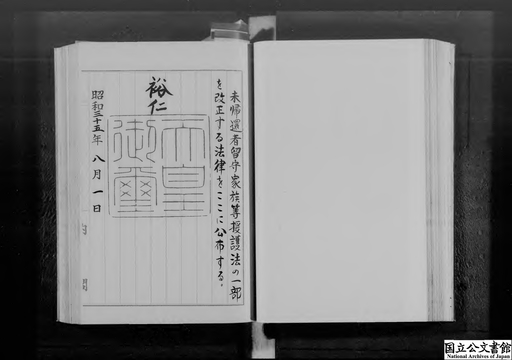 未帰還者留守家族等援護法の一部
を改正する法律をここに公布する。
裕仁
天皇
御璽
昭和三十五年八月一日
国立公文書館
National Archives of Japan